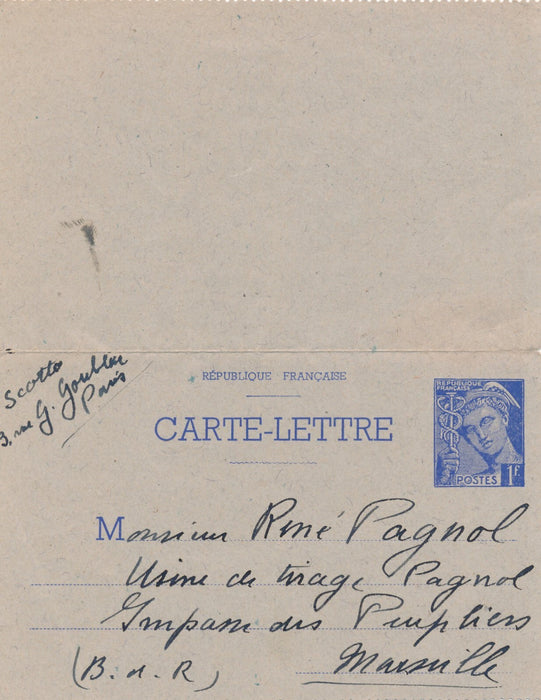 Scotto
3, rue G. Goublier
Paris
RÉPUBLIQUE FRANÇAISE
CARTE-LETTRE
RÉPUBLIQUE
FRANÇAISE
POSTES 1F
Monsieur René Pagnol
Usine de tirage Pagnol
Impasse des Peupliers
(B. d. R)
Marseille